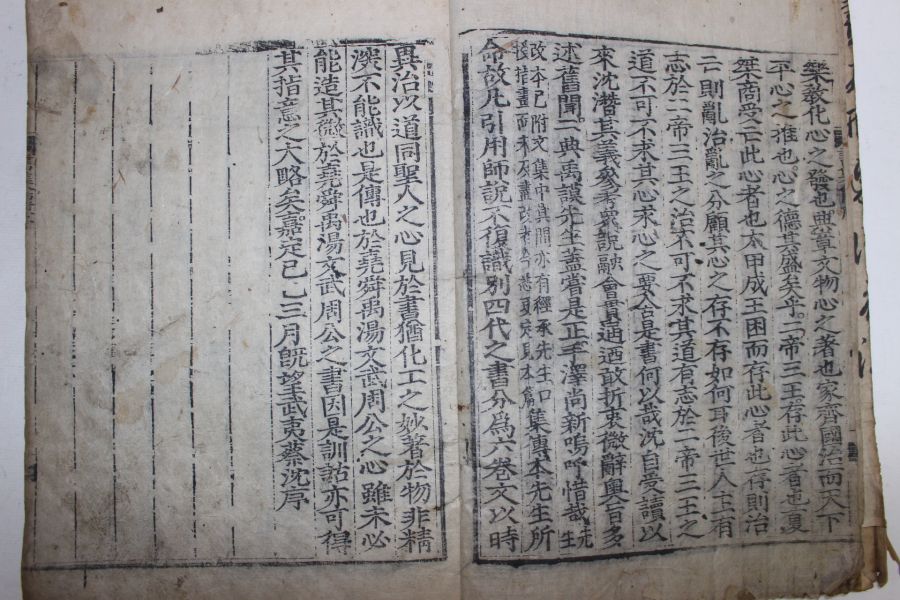 樂教化心之發也典章文物心之著也家齊國治而天下
平心之推也心之德其盛矣乎二帝三王存此心者也夏
桀商受亡此心者也太甲成王困而存此心者也存則治
亡則亂治亂之分顧其心之存不存如何耳後世人主有
志於二帝三王之治不可不求其道有志於二帝三王之
道不可不求其心求心之要舍是書何以哉沈自受讀以
來沈潛其義參考衆說融會貫通迺敢折衷微辭奧旨多
述舊聞二典禹謨先生蓋嘗是正手澤尚新嗚呼惜哉先生
改本已附文集中其間亦有經承先生口
授指畫而未及盡改者今悉更定見本篇
集傳本先生所
命故凡引用師說不復識別四代之書分爲六卷文以時
異治以道同聖人之心見於書猶化工之妙著於物非精
深不能識也是傳也於堯舜禹湯文武周公之心雖未必
能造其微於堯舜禹湯文武周公之書因是訓詁亦可得
其指意之大略矣嘉定己巳三月旣望武夷蔡沈序